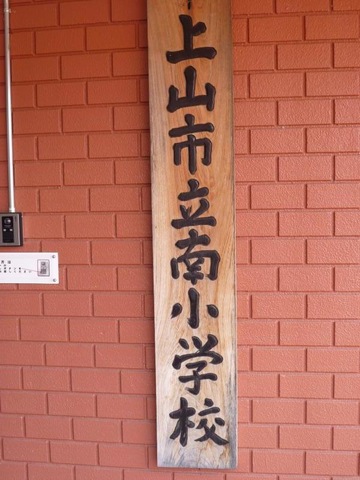 上山市立南小学校